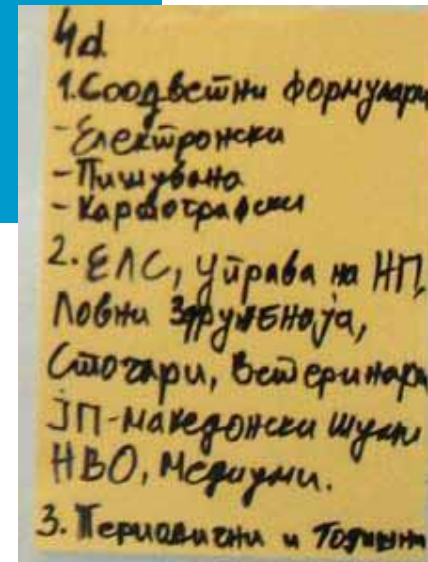 4d.
1. Соодветни формулари
- Електронски
- Пишувано
- Картографски
2. ЕЛС, Управа на НП,
Ловни Здруженија,
Сточари, Ветеринари
ЈП-Македонски шуми
НВО, Медиуми.
3. Периодични и Годишни